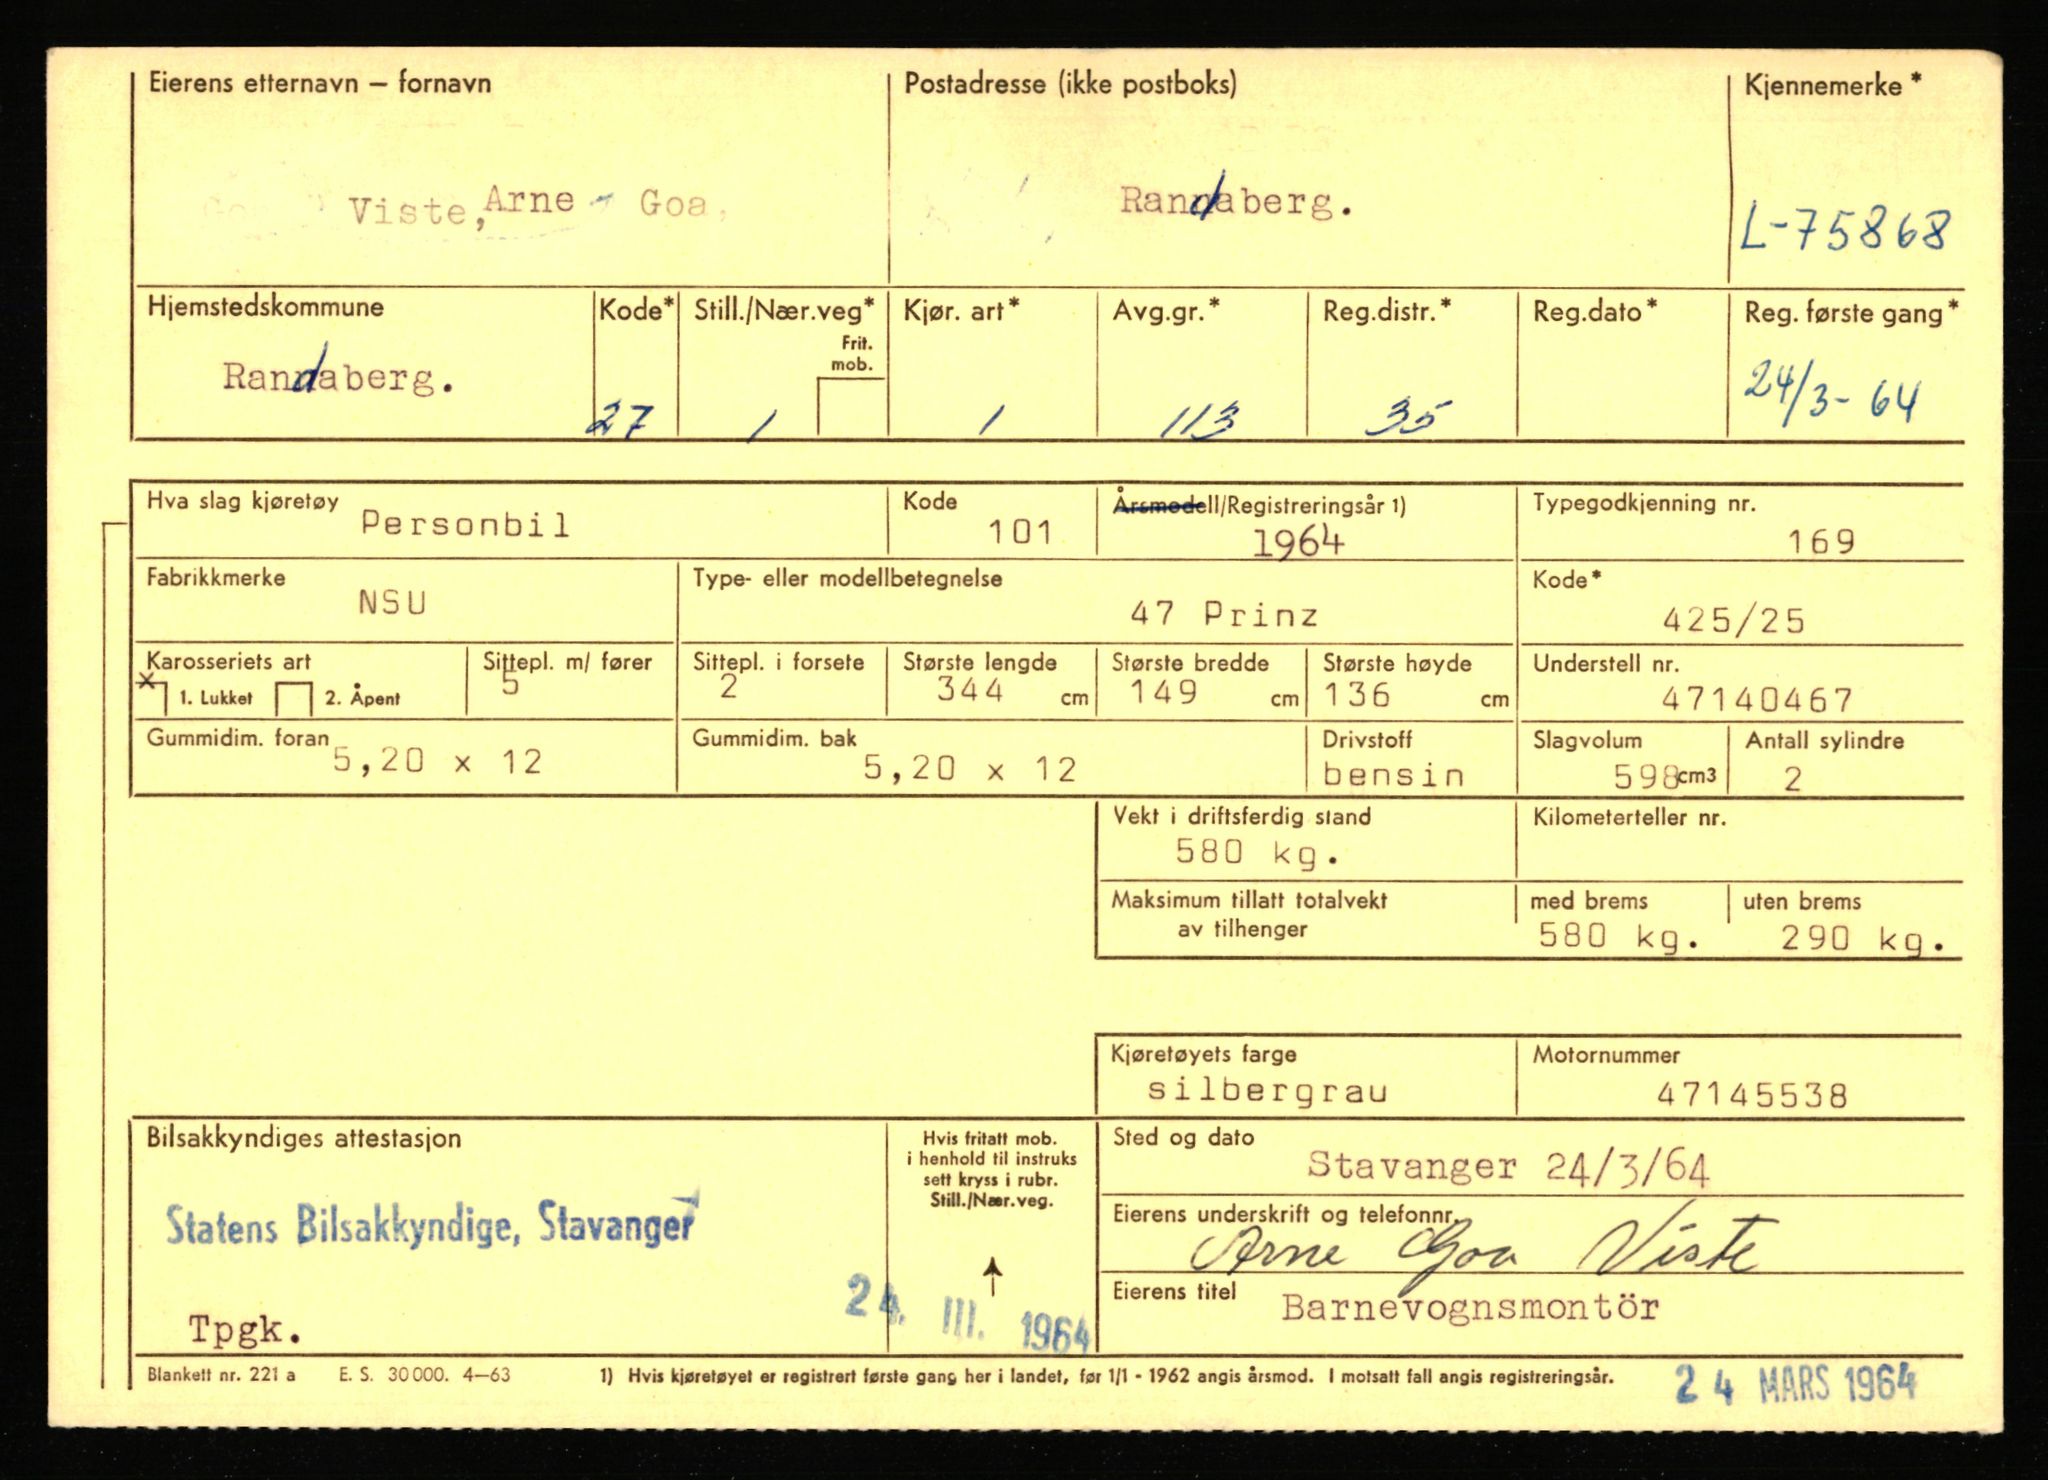 Eierens etternavn – fornavn
Postadresse (ikke postboks)
Kjennemerke*
Viste, Arne - Goa,
Randaberg.
L-75868
Hjemstedskommune
Kode*
Still./Nær.veg*
Frit.
mob.
Kjør. art*
Avg.gr.*
Reg.distr.*
Reg.dato*
Reg. første gang*
Randaberg.
27
1
1
113
35
24/3-64
Hva slag kjøretøy
Personbil
Kode
101
Årsmodell/Registreringsår 1)
1964
Typegodkjenning nr.
169
Fabrikkmerke
NSU
Type- eller modellbetegnelse
47 Prinz
Kode*
425/25
Karosseriets art
x 1. Lukket 2. Åpent
Sittepl. m/ fører
5
Sittepl. i forsete
2
Største lengde
344 cm
Største bredde
149 cm
Største høyde
136 cm
Understell nr.
47140467
Gummidim. foran
5,20 x 12
Gummidim. bak
5,20 x 12
Drivstoff
bensin
Slagvolum
598 cm3
Antall sylindre
2
Vekt i driftsferdig stand
580 kg.
Kilometerteller nr.
Maksimum tillatt totalvekt
av tilhenger
med brems
580 kg.
uten brems
290 kg.
Kjøretøyets farge
silbergrau
Motornummer
47145538
Bilsakkyndiges attestasjon
Statens Bilsakkyndige, Stavanger
24. III. 1964
Tpgk.
Hvis fritatt mob.
i henhold til instruks
sett kryss i rubr.
Still./Nær.veg.
Sted og dato
Stavanger 24/3/64
Eierens underskrift og telefonnr.
Arne Goa Viste
Eierens titel
Barnevognsmontör
Blankett nr. 221 a E. S. 30 000. 4–63
1) Hvis kjøretøyet er registrert første gang her i landet, før 1/1 - 1962 angis årsmod. I motsatt fall angis registreringsår.
24 MARS 1964